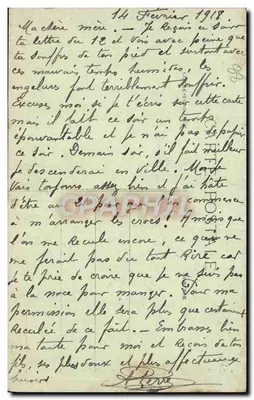 14 Février 1918
Ma chère mère. - Je Reçois ce soir
ta lettre du 12 et vois avec peine que
tu souffres de ton pied et surtout avec
ces mauvais temps humides, les
engelures font terriblement souffrir.
Excuse moi si je t'écris sur cette carte
mais il fait ce soir un temps
épouvantable et je n'ai pas de papier
ce soir. Demain soir, s'il fait meilleur
je descendrai en ville.
Vais toujours assez bien et j'ai hâte
d'être au
à m'arranger les crocs! A moins que
l'on me Recule encore, ce qui ne
me ferait pas du tout Rire car
je te prie de croire que je ne suis pas
à la noce pour manger. Pour ma
permission elle sera plus que certainement
Reculée de ce fait. - Embrasse bien
ma tante pour moi et Reçois de ton
fils, ses plus doux et plus affectueux
baisers